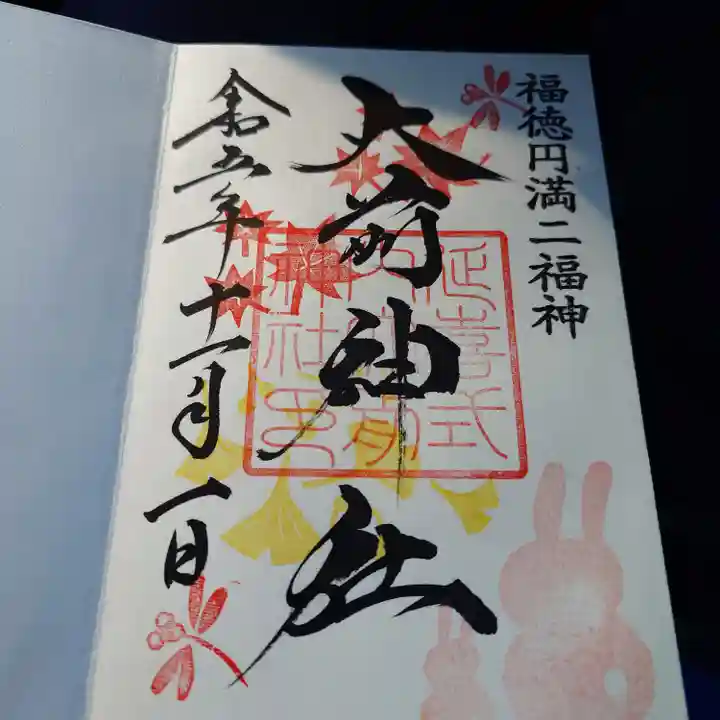 福徳円満二福神
大前神社
延喜式
内大前
神社之印
令和五年十一月一日